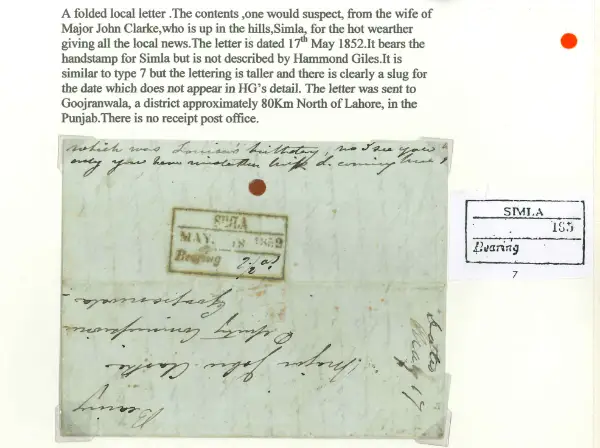 A folded local letter .The contents ,one would suspect, from the wife of
Major John Clarke,who is up in the hills,Simla, for the hot wearther
giving all the local news.The letter is dated 17th May 1852.It bears the
handstamp for Simla but is not described by Hammond Giles.It is
similar to type 7 but the lettering is taller and there is clearly a slug for
the date which does not appear in HG's detail. The letter was sent to
Goojranwala, a district approximately 80Km North of Lahore, in the
Punjab.There is no receipt post office.
which was Louisa's birthday, no I see you
only you have
SIMLA
MAY. 18 1852
Bearing
SIMLA
185
Bearing
7
Goojranwala
Deputy Commissioner
Major John Clarke
Bearing
May 17